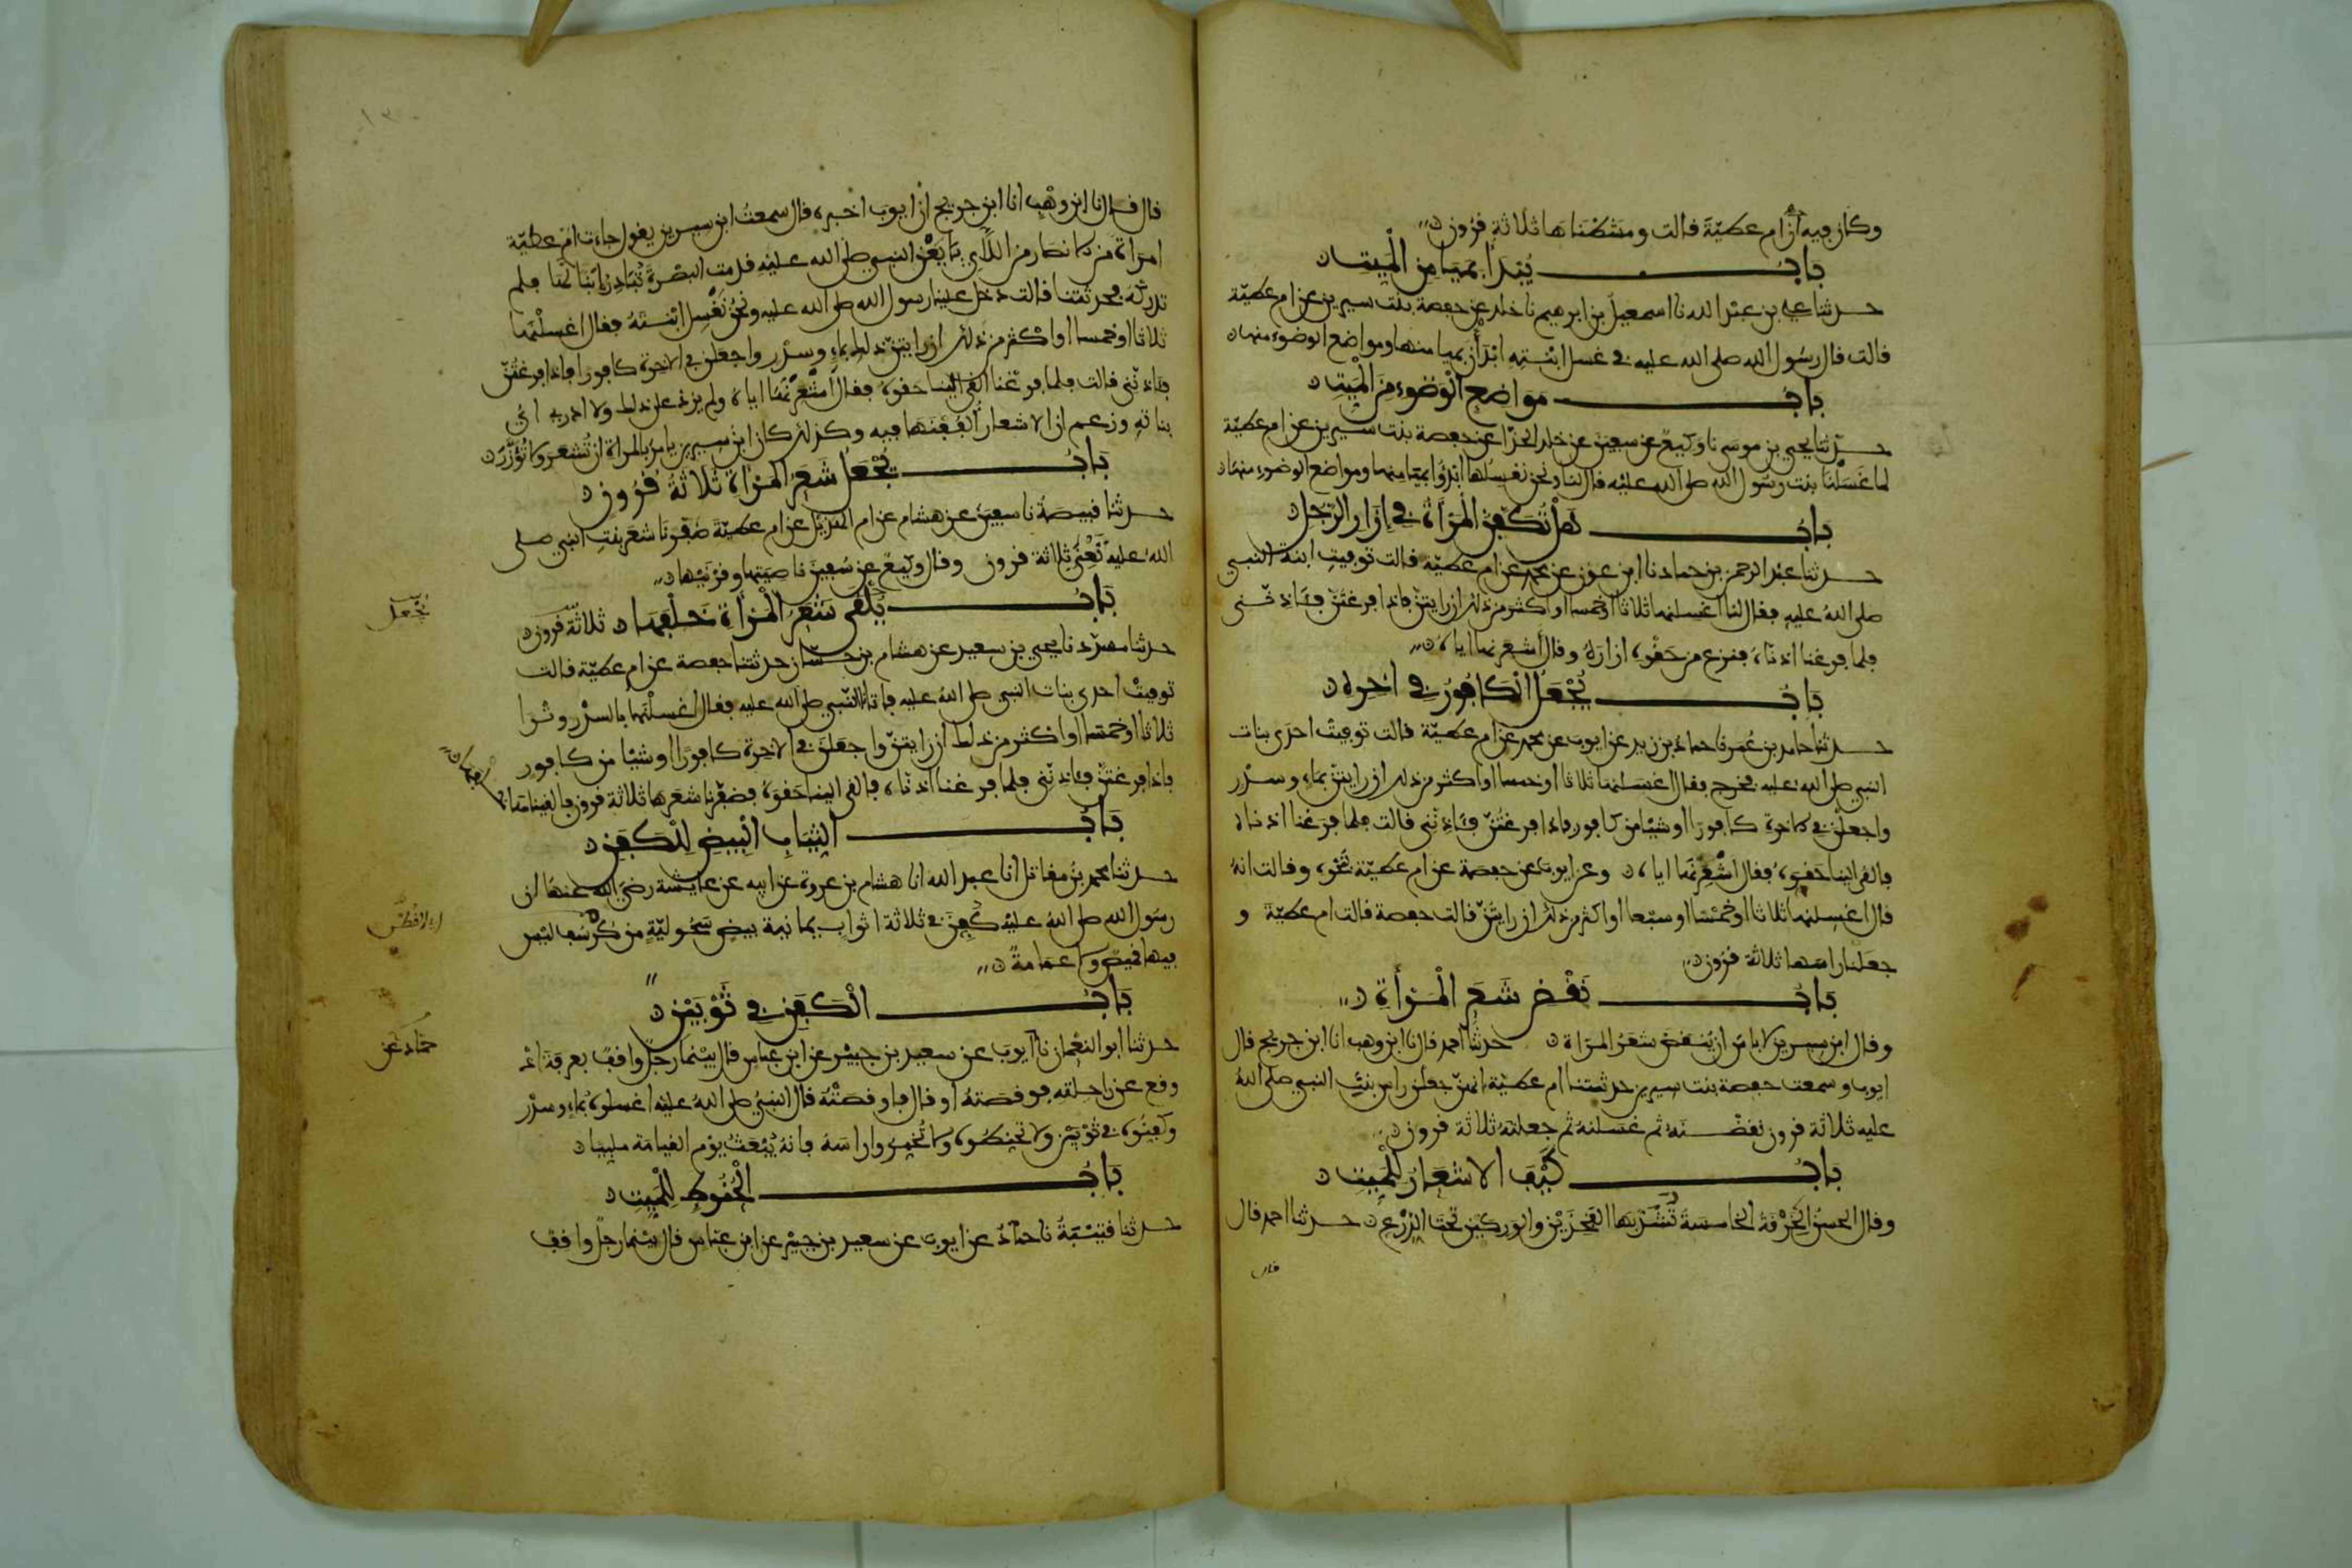 وكان فيه أن أم عطية قالت ومشطناها ثلاثة قرون
باب يُبدأ بميامن الميت
حدثنا علي بن عبد الله نا اسمعيل بن ابرهيم نا خلد عن حفصة بنت سيرين عن ام عطية
قالت قال رسول الله صلى الله عليه في غسل ابنته ابدأن بميامنها ومواضع الوضوء منها
باب مواضع الوضوء من الميت
حدثنا يحيى بن موسى نا وكيع عن سفين عن خلد الحذا عن حفصة بنت سيرين عن ام عطية
لما غسلنا بنت رسول الله صلى الله عليه قال لنا ونحن نغسلها ابدؤا بميامنها ومواضع الوضوء منها
باب هل تكفن المرأة في إزار الرجل
حدثنا عبد الرحمن بن حماد نا ابن عون عن محمد عن ام عطية قالت توفيت ابنة النبي
صلى الله عليه فقال لنا اغسلنها ثلاثا او خمسا او اكثر من ذلك ان رايتن فاذا فرغتن فئاذنني
فلما فرغنا اذناه فنزع من حقوه ازاره وقال أشعرنها اياه
باب يُجعل الكافور في اخره
حدثنا حامد بن عمر نا حماد بن زيد عن ايوب عن محمد عن ام عطية قالت توفيت احدى بنات
النبي صلى الله عليه فخرج فقال اغسلنها ثلاثا او خمسا او اكثر من ذلك ان رايتن بماء وسدر
واجعلن في الاخرة كافورا او شيئا من كافور فاذا فرغتن فئاذنني قالت فلما فرغنا اذناه
فالقى الينا حقوه فقال أشعرنها اياه وعن ايوب عن حفصة عن ام عطية بنحوه وقالت انه
قال اغسلنها ثلاثا او خمسا او سبعا او اكثر من ذلك ان رايتن قالت حفصة قالت ام عطية و
جعلنا راسها ثلاثة قرون
باب نقض شعر المرأة
وقال ابن سيرين لا باس ان ينقض شعر المراة حدثنا احمد قال نا ابن وهب انا ابن جريج قال
ايوب وسمعت حفصة بنت سيرين حدثتنا ام عطية انهن جعلن راس بنت النبي صلى الله
عليه ثلاثة قرون نقضنه ثم غسلنه ثم جعلنه ثلاثة قرون
باب كيف الاشعار للميت
وقال الحسن الخرقة الخامسة تشد بها الفخذين والوركين تحت الدرع حدثنا احمد قال
قال
قال قال نا ابن وهب انا ابن جريج ان ايوب اخبره قال سمعت ابن سيرين يقول جاءت ام عطية
امراة من الانصار من اللاي بايعن النبي صلى الله عليه قدمت البصرة تبادر ابنا لها فلم
تدركه فحدثتنا قالت دخل علينا رسول الله صلى الله عليه ونحن نغسل ابنته فقال اغسلنها
ثلاثا او خمسا او اكثر من ذلك ان رايتن ذلك بماء وسدر واجعلن في الاخرة كافورا فاذا فرغتن
فئاذنني قالت فلما فرغنا القى الينا حقوه فقال أشعرنها اياه ولم يزد على ذلك ولا ادري اي
بناته وزعم ان الاشعار الففنها فيه وكذلك كان ابن سيرين يامر بالمراة ان تشعر ولا تؤزر
باب يُجعل شعر المراة ثلاثة قرون
حدثنا قبيصة نا سفين عن هشام عن ام الهذيل عن ام عطية ضفرنا شعر بنت النبي صلى
الله عليه تعني ثلاثة قرون وقال وكيع عن سفين ناصيتها وقرنيها
باب يُلقى شعر المرأة خلفها ثلاثة قرون
حدثنا مسدد نا يحيى بن سعيد عن هشام بن حسان حدثتنا حفصة عن ام عطية قالت
توفيت احدى بنات النبي صلى الله عليه فاتانا النبي صلى الله عليه فقال اغسلنها بالسدر وترا
ثلاثا او خمسا او اكثر من ذلك ان رايتن واجعلن في الاخرة كافورا او شيئا من كافور
فاذا فرغتن فئاذنني فلما فرغنا اذناه فالقى الينا حقوه فضفرنا شعرها ثلاثة قرون فالقيناها
خلفها
باب الثياب البيض للكفن
حدثنا محمد بن مقاتل انا عبد الله انا هشام بن عروة عن ابيه عن عايشة رضي الله عنها ان
رسول الله صلى الله عليه كفن في ثلاثة اثواب يمانية بيض سحولية من كرسف ليس
فيها قميص ولا عمامة
باب الكفن في ثوبين
حدثنا أبو النعمان نا ايوب عن سعيد بن جبير عن ابن عباس قال بينما رجل واقف بعرفة اذ
وقع عن راحلته فوقصته او قال فاوقصته قال النبي صلى الله عليه اغسلوه بماء وسدر
وكفنوه في ثوبين ولا تحنطوه ولا تخمروا راسه فانه يبعث يوم القيامة ملبيا
باب الحنوط للميت
حدثنا قتيبة نا حماد عن ايوب عن سعيد بن جبير عن ابن عباس قال بينما رجل واقف
يُجعل
حماد عن